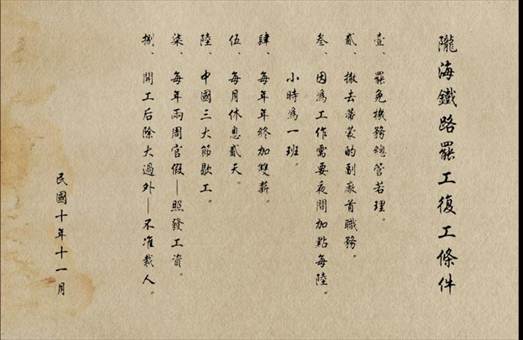 隴海鐵路罷工復工條件
壹、罷免機務總管若理。
貳、撤去蒂蒙的副廠首職務。
叁、因爲工作需要夜間加點每陸
小時爲一班。
肆、每年年終加雙薪。
伍、每月休息貳天。
陸、中國三大節歇工。
柒、每年兩周官假—照發工資。
捌、開工后除大過外—不准裁人。
民國十年十一月